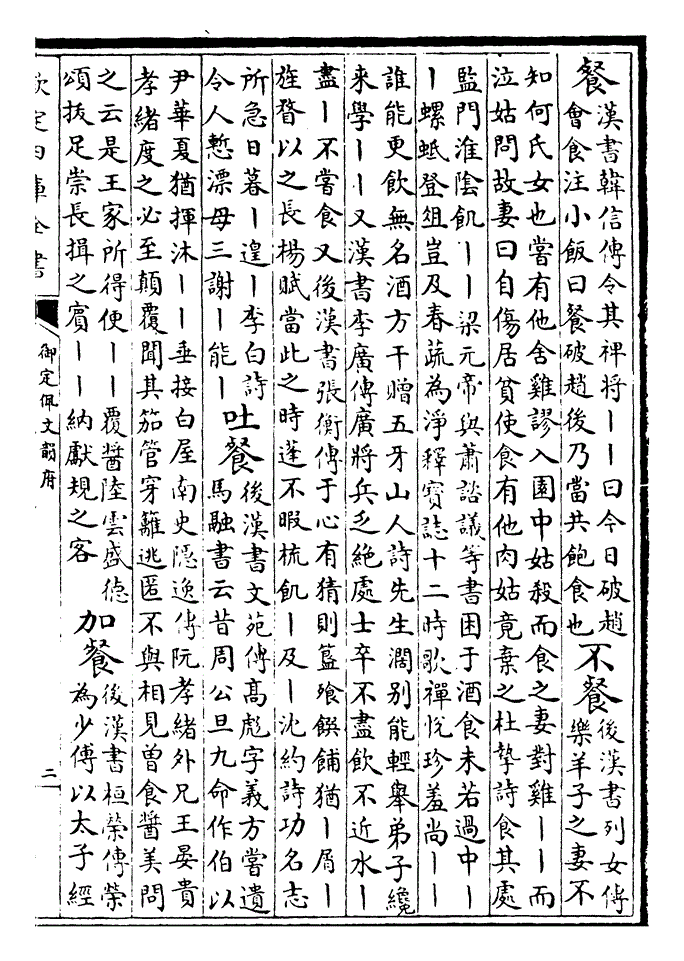 餐漢書韓信傳令其裨將丨丨曰今日破趙
會食注小飯曰餐破趙後乃當共飽食也
不餐後漢書列女傳
樂羊子之妻不
知何氏女也嘗有他舍雞謬入園中姑殺而食之妻對雞丨丨而
泣姑問故妻曰自傷居貧使食有他肉姑竟棄之杜摯詩食其處
監門淮陰飢丨丨梁元帝與蕭諮議等書困于酒食未若過中丨
丨螺蚳登俎豈及春蔬為淨釋寶誌十二時歌禪悅珍羞尚丨丨丨
誰能更飲無名酒方干贈五牙山人詩先生濶别能輕舉弟子纔
來學丨丨又漢書李廣傳廣將兵乏絕處士卒不盡飲不近水丨
盡丨不嘗食又後漢書張衡傳于心有猜則簋飱饌餔猶丨屑丨
旌瞀以之長楊賦當此之時蓬不暇梳飢丨及丨沈約詩功名志
所急日暮丨遑丨李白詩
令人慙漂母三謝丨能丨
吐餐後漢書文苑傳髙彪字義方嘗遺
馬融書云昔周公旦九命作伯以
尹華夏猶揮沐丨丨垂接白屋南史隱逸傳阮孝緒外兄王晏貴
孝緒度之必至顛覆聞其笳管穿籬逃匿不與相見曽食醬美問
之云是王家所得便丨丨覆醬陸雲盛德
頌拔足崇長揖之賔丨丨納獻規之客
加餐後漢書桓榮傳榮
為少傅以太子經
欽定四庫全書
御定佩文韻府
二